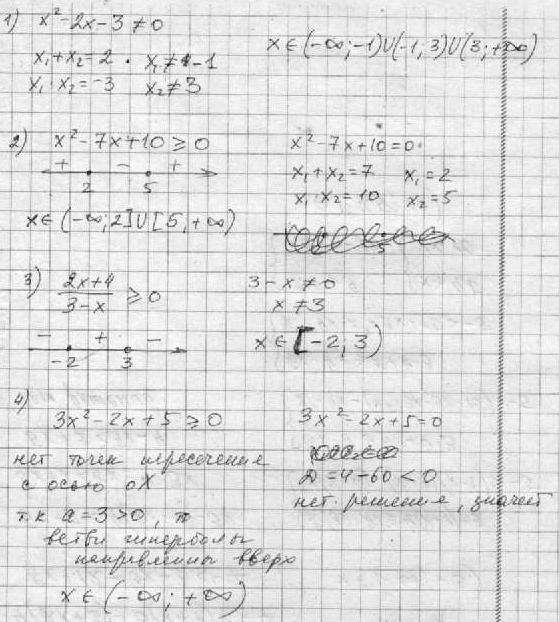 1) x² - 2x - 3 ≠ 0
x₁ + x₂ = 2 · x₁ ≠ -1
x₁ · x₂ = -3 x₂ ≠ 3
x ∈ (-∞; -1) ∪ (-1; 3) ∪ (3; +∞)
2) x² - 7x + 10 ≥ 0
+ - +
2 5
x ∈ (-∞; 2] ∪ [5; +∞)
x² - 7x + 10 = 0
x₁ + x₂ = 7 x₁ = 2
x₁ · x₂ = 10 x₂ = 5
3) 2x+4
3-x ≥ 0
- + -
-2 3
3 - x ≠ 0
x ≠ 3
x ∈ [-2; 3)
4)
3x² - 2x + 5 ≥ 0
нет точек пересечение
с осью оХ
т.к a = 3 > 0, то
ветви гиперболы
направленны вверх
x ∈ (-∞; +∞)
3x² - 2x + 5 = 0
D = 4 - 60 < 0
нет решение, значит